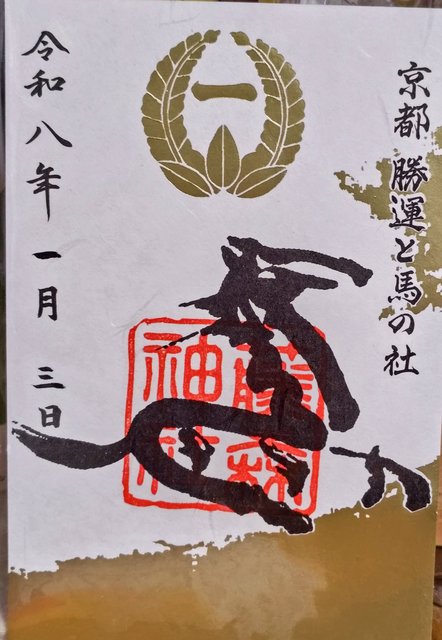 京都 勝運と馬の社
一
藤森神社
令和八年 一月 三日